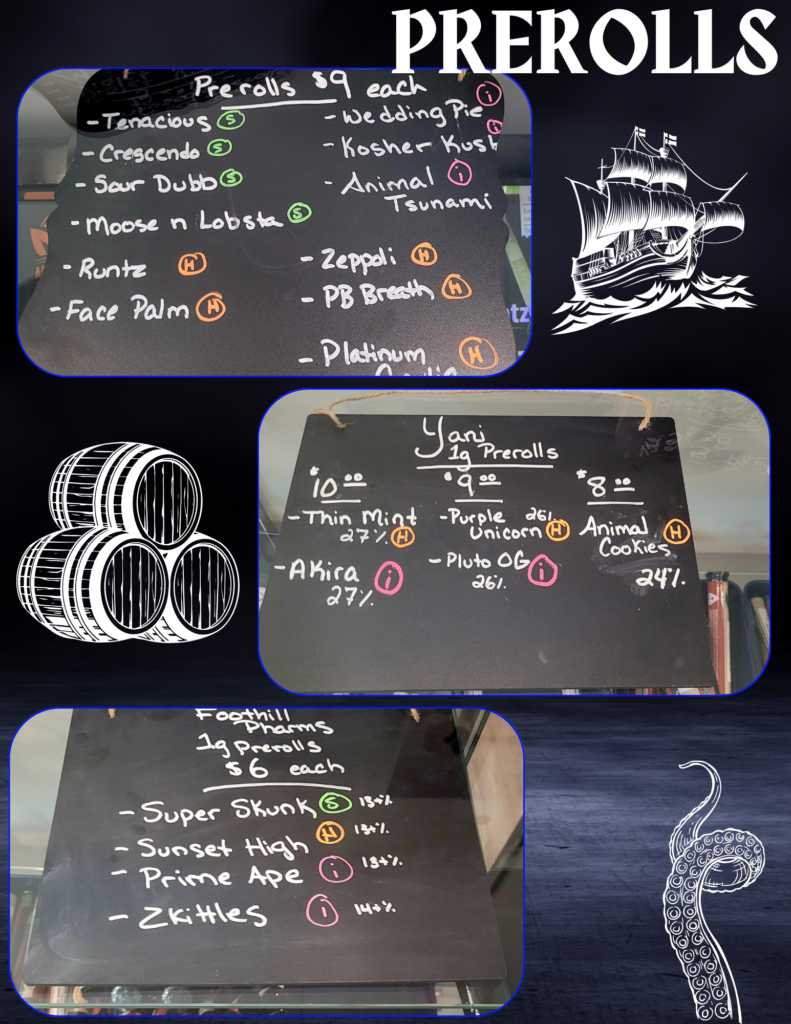 PREROLLS
Prerolls $9 each
- Tenacious S
- Crescendo S
- Sour Dubb S
- Moose n Lobsta S
- Runtz H
- Face Palm H
- Wedding Pie i
- Kosher Kush i
- Animal i
Tsunami
- Zeppoli H
- PB Breath H
- Platinum H
Yani
1g Prerolls
$10 00
- Thin Mint
27% H
- Akira i
27%
$9 00
- Purple 26%
Unicorn H
- Pluto OG i
26%
$8 00
Animal H
Cookies
24%
Foothill
Pharms
1g prerolls
$6 each
- Super Skunk S 13+%
- Sunset High H 13+%
- Prime Ape i 13+%
- Zkittles i 14+%